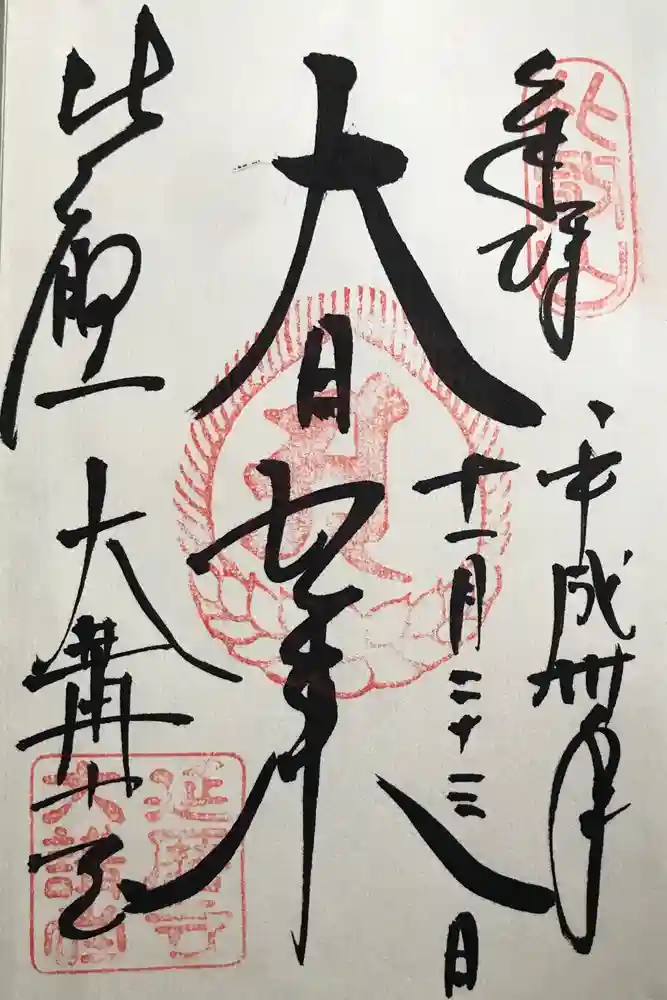 奉拝
平成卅年
十一月二十三日
大日如来
比叡山
大講堂
比叡山
延暦寺
大講堂